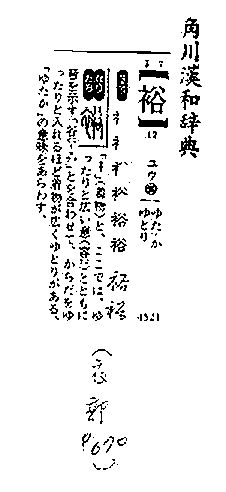 角川漢和辞典
【裕】
12
ユウ
ゆたか
ゆとり
1521
ネ 衤 衤 衤 裕 裕 裕 裕
なりたち
「衤」(着物)と、ここでは、ゆ
ったりと広い意(容だ)とともに
音を示す「谷」とを合わせて、からだをゆ
ったりと入れるほど着物が広くゆとりがある、
「ゆたか」の意味をあらわす。
(衣部
P670)